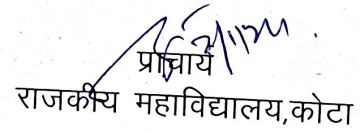 प्राचार्य
राजकीय महाविद्यालय,कोटा